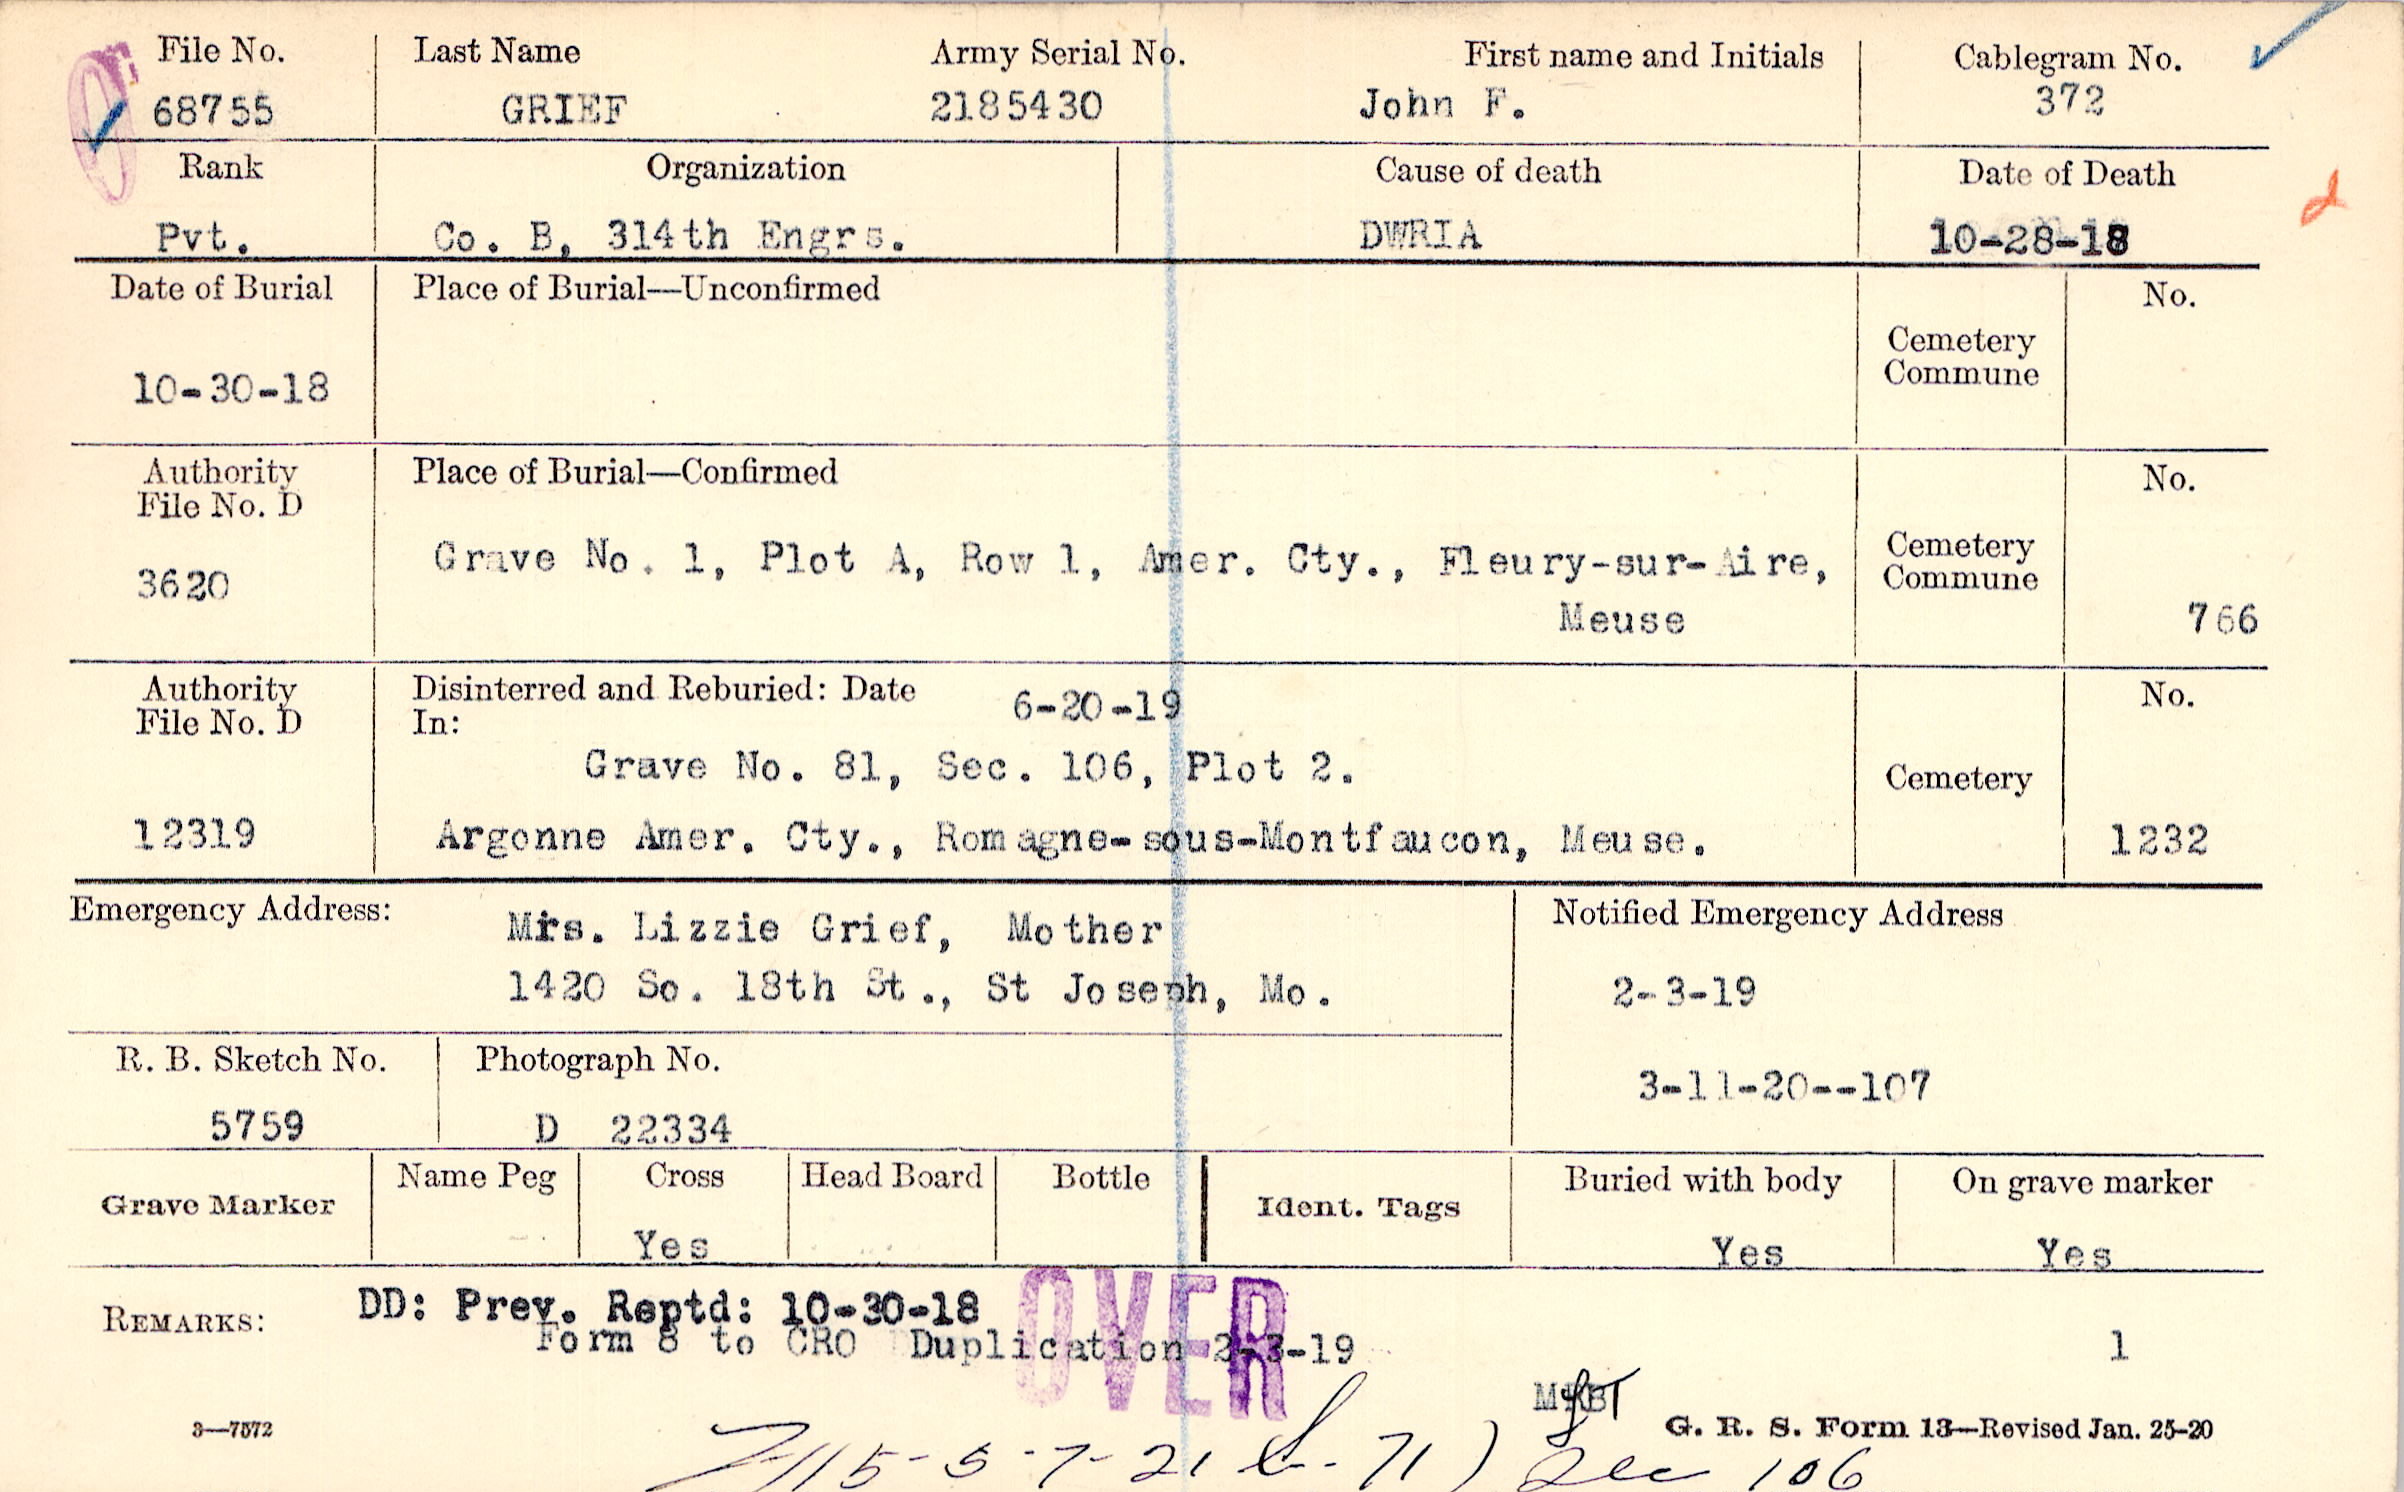 File No. Last Name Army Serial No. First name and Initials Cablegram No.
68755 GRIEF 2185430 John F. 372
Rank Organization Cause of death Date of Death
Pvt. Co. B, 314th Engrs. DWRIA 10-28-18
Date of Burial Place of Burial—Unconfirmed No.
Cemetery
Commune
10-30-18
Authority Place of Burial—Confirmed No.
File No. D
Grave No. 1, Plot A, Row 1, Amer. Cty., Fleury-sur-Aire, Cemetery
3620 Commune
Meuse 766
Authority Disinterred and Reburied: Date 6-20-19 No.
File No. D In:
Grave No. 81, Sec. 106, Plot 2. Cemetery
12319 Argonne Amer. Cty., Romagne-sous-Montfaucon, Meuse. 1232
Emergency Address: Mrs. Lizzie Grief, Mother Notified Emergency Address
1420 So. 18th St., St Joseph, Mo. 2-3-19
R. B. Sketch No. Photograph No. 3-11-20--107
5759 D 22334
Grave Marker Name Peg Cross Head Board Bottle Ident. Tags Buried with body On grave marker
Yes Yes Yes
REMARKS: DD: Prev. Reptd: 10-30-18 OVER
Form 8 to CRO Duplication 2-3-19 1
3—7572 G. R. S. Form 13—Revised Jan. 25-20
115-5-7-21 71) Sec 106